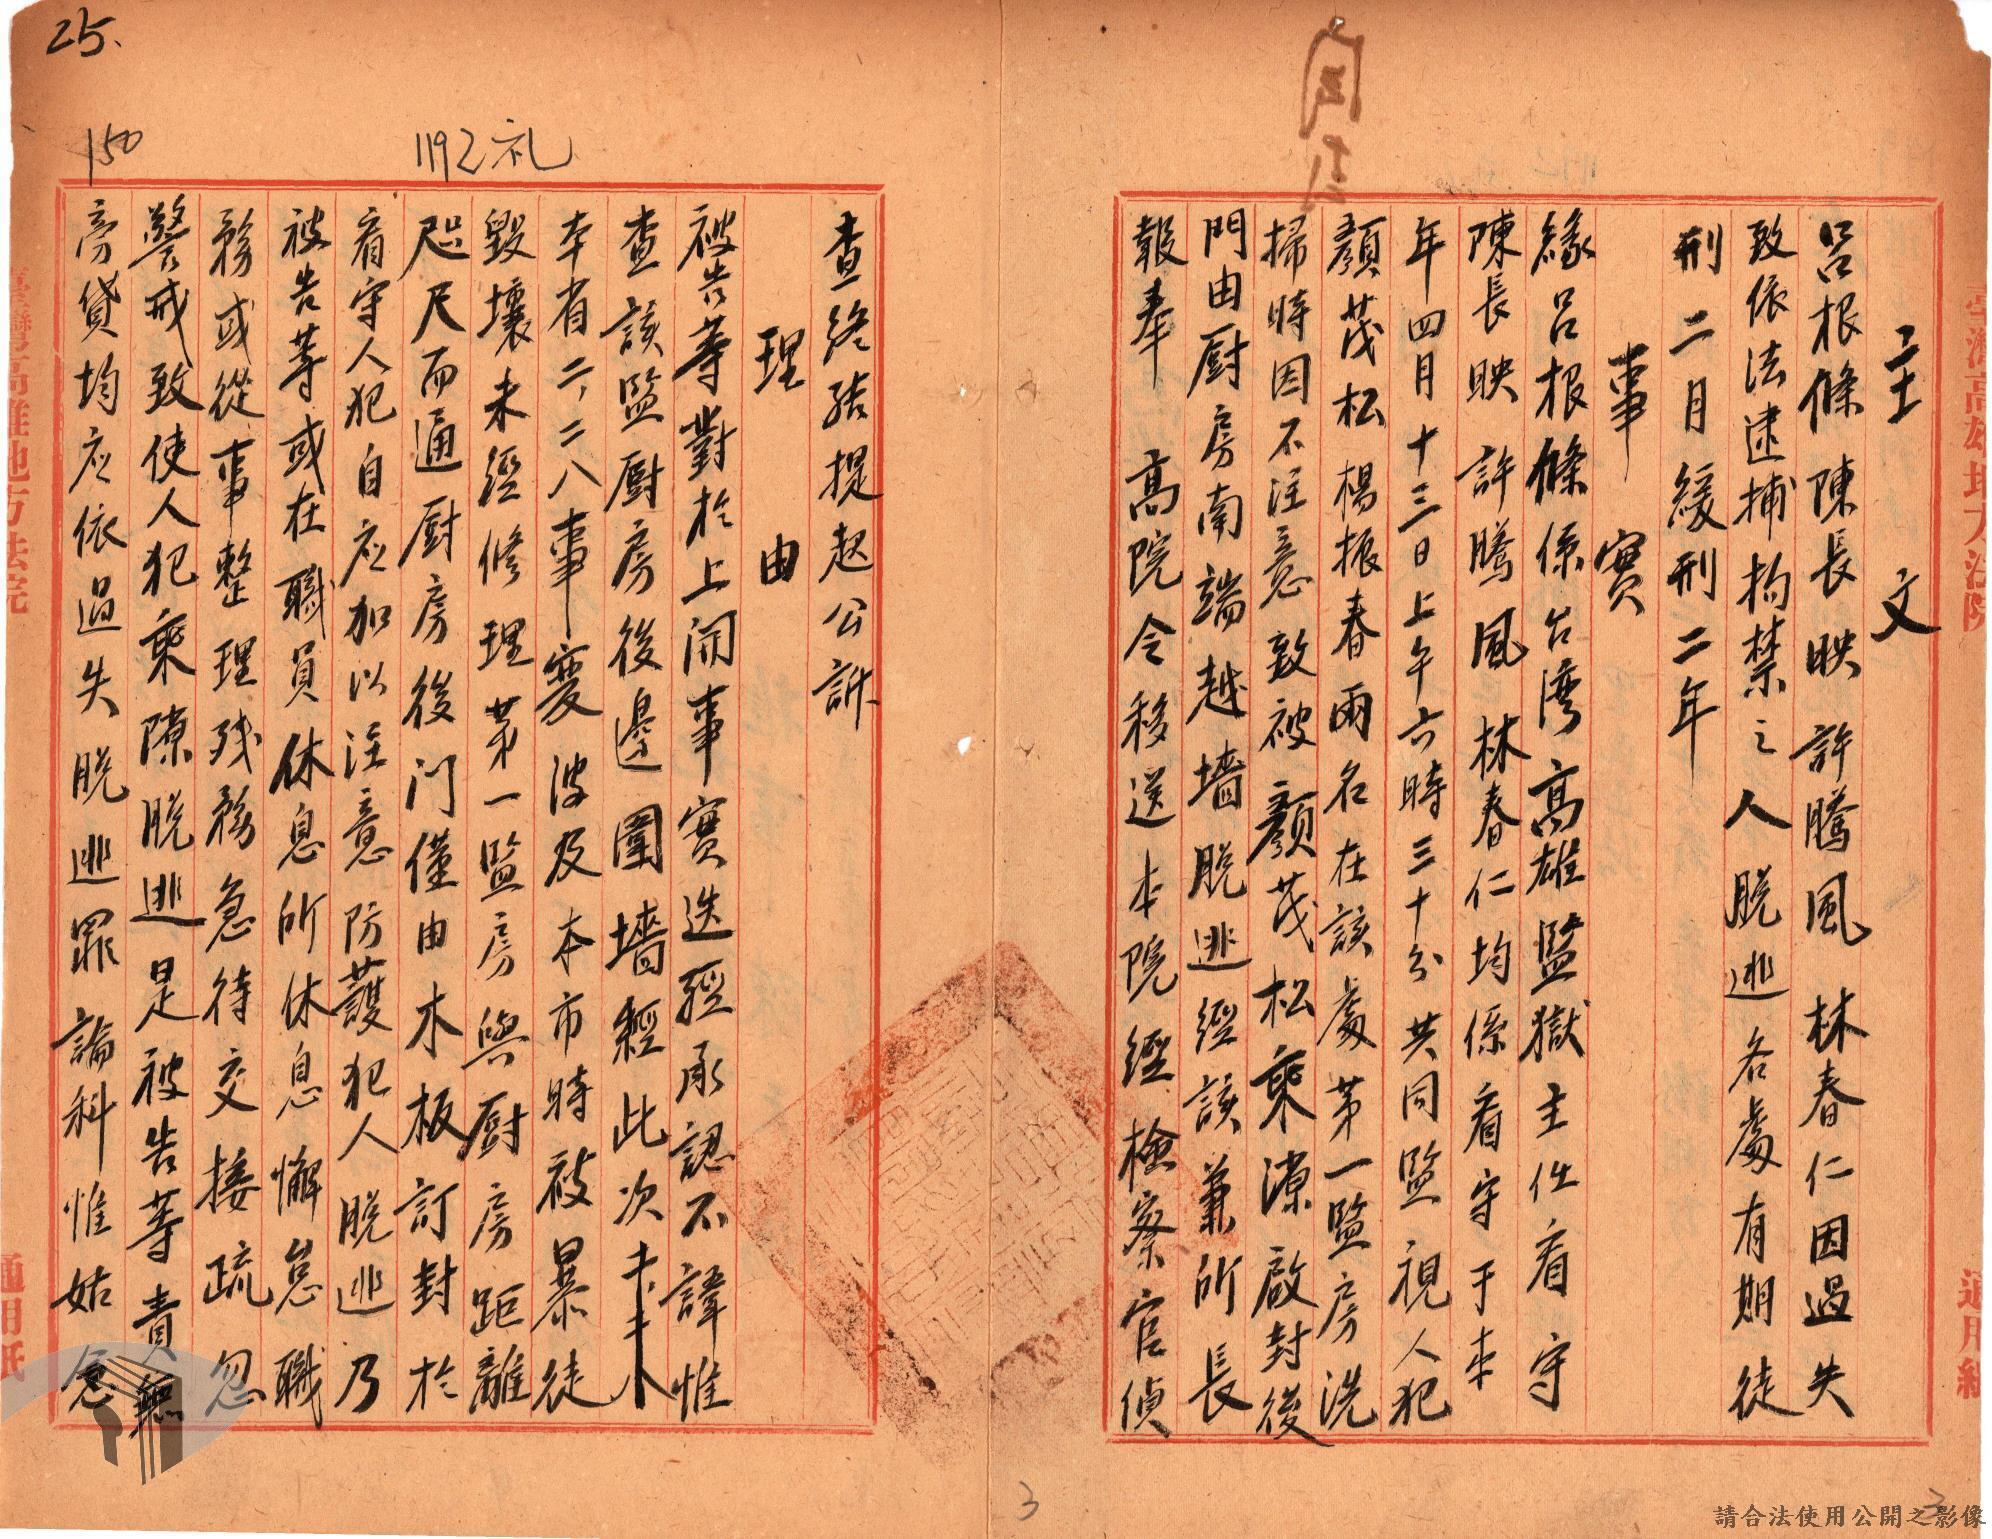 主文
呂根條陳長映許騰風林春仁因過失
致依法逮捕拘禁之人脫逃各處有期徒
刑二月緩刑二年
事實
緣呂根條係台湾高雄監獄主任看守
陳長映許騰風林春仁均係看守于本
年四月十三日上午六時三十分共同監視人犯
顏茂松楊振春兩名在該處第一監房洗
掃時因不注意致被顏茂松乘隙啟封後
門由厨房南端越墻脫逃經該兼所長
報奉高院令移送本院經檢察官偵
查終結提起公訴
理由
被告等對於上開事實迭經承認不諱惟
查該監厨房後邊圍墻經此次
本省二、二八事變波及本市時被暴徒
毀壞未經修理第一監房與厨房距離
咫尺而通厨房後门僅由木板訂封於
看守人犯自应加以注意防護犯人脫逃乃
被告等或在職員休息所休息懈怠職
務或從事整理残務急待交接疏忽
警戒致使人犯乘隙脫逃是被告等責無
旁貸均应依過失脫逃罪論科惟姑念
臺灣高雄地方法院
通用紙
臺灣高雄地方法院
通用紙
25.
150
1192礼
3
3
請合法使用公開之影像